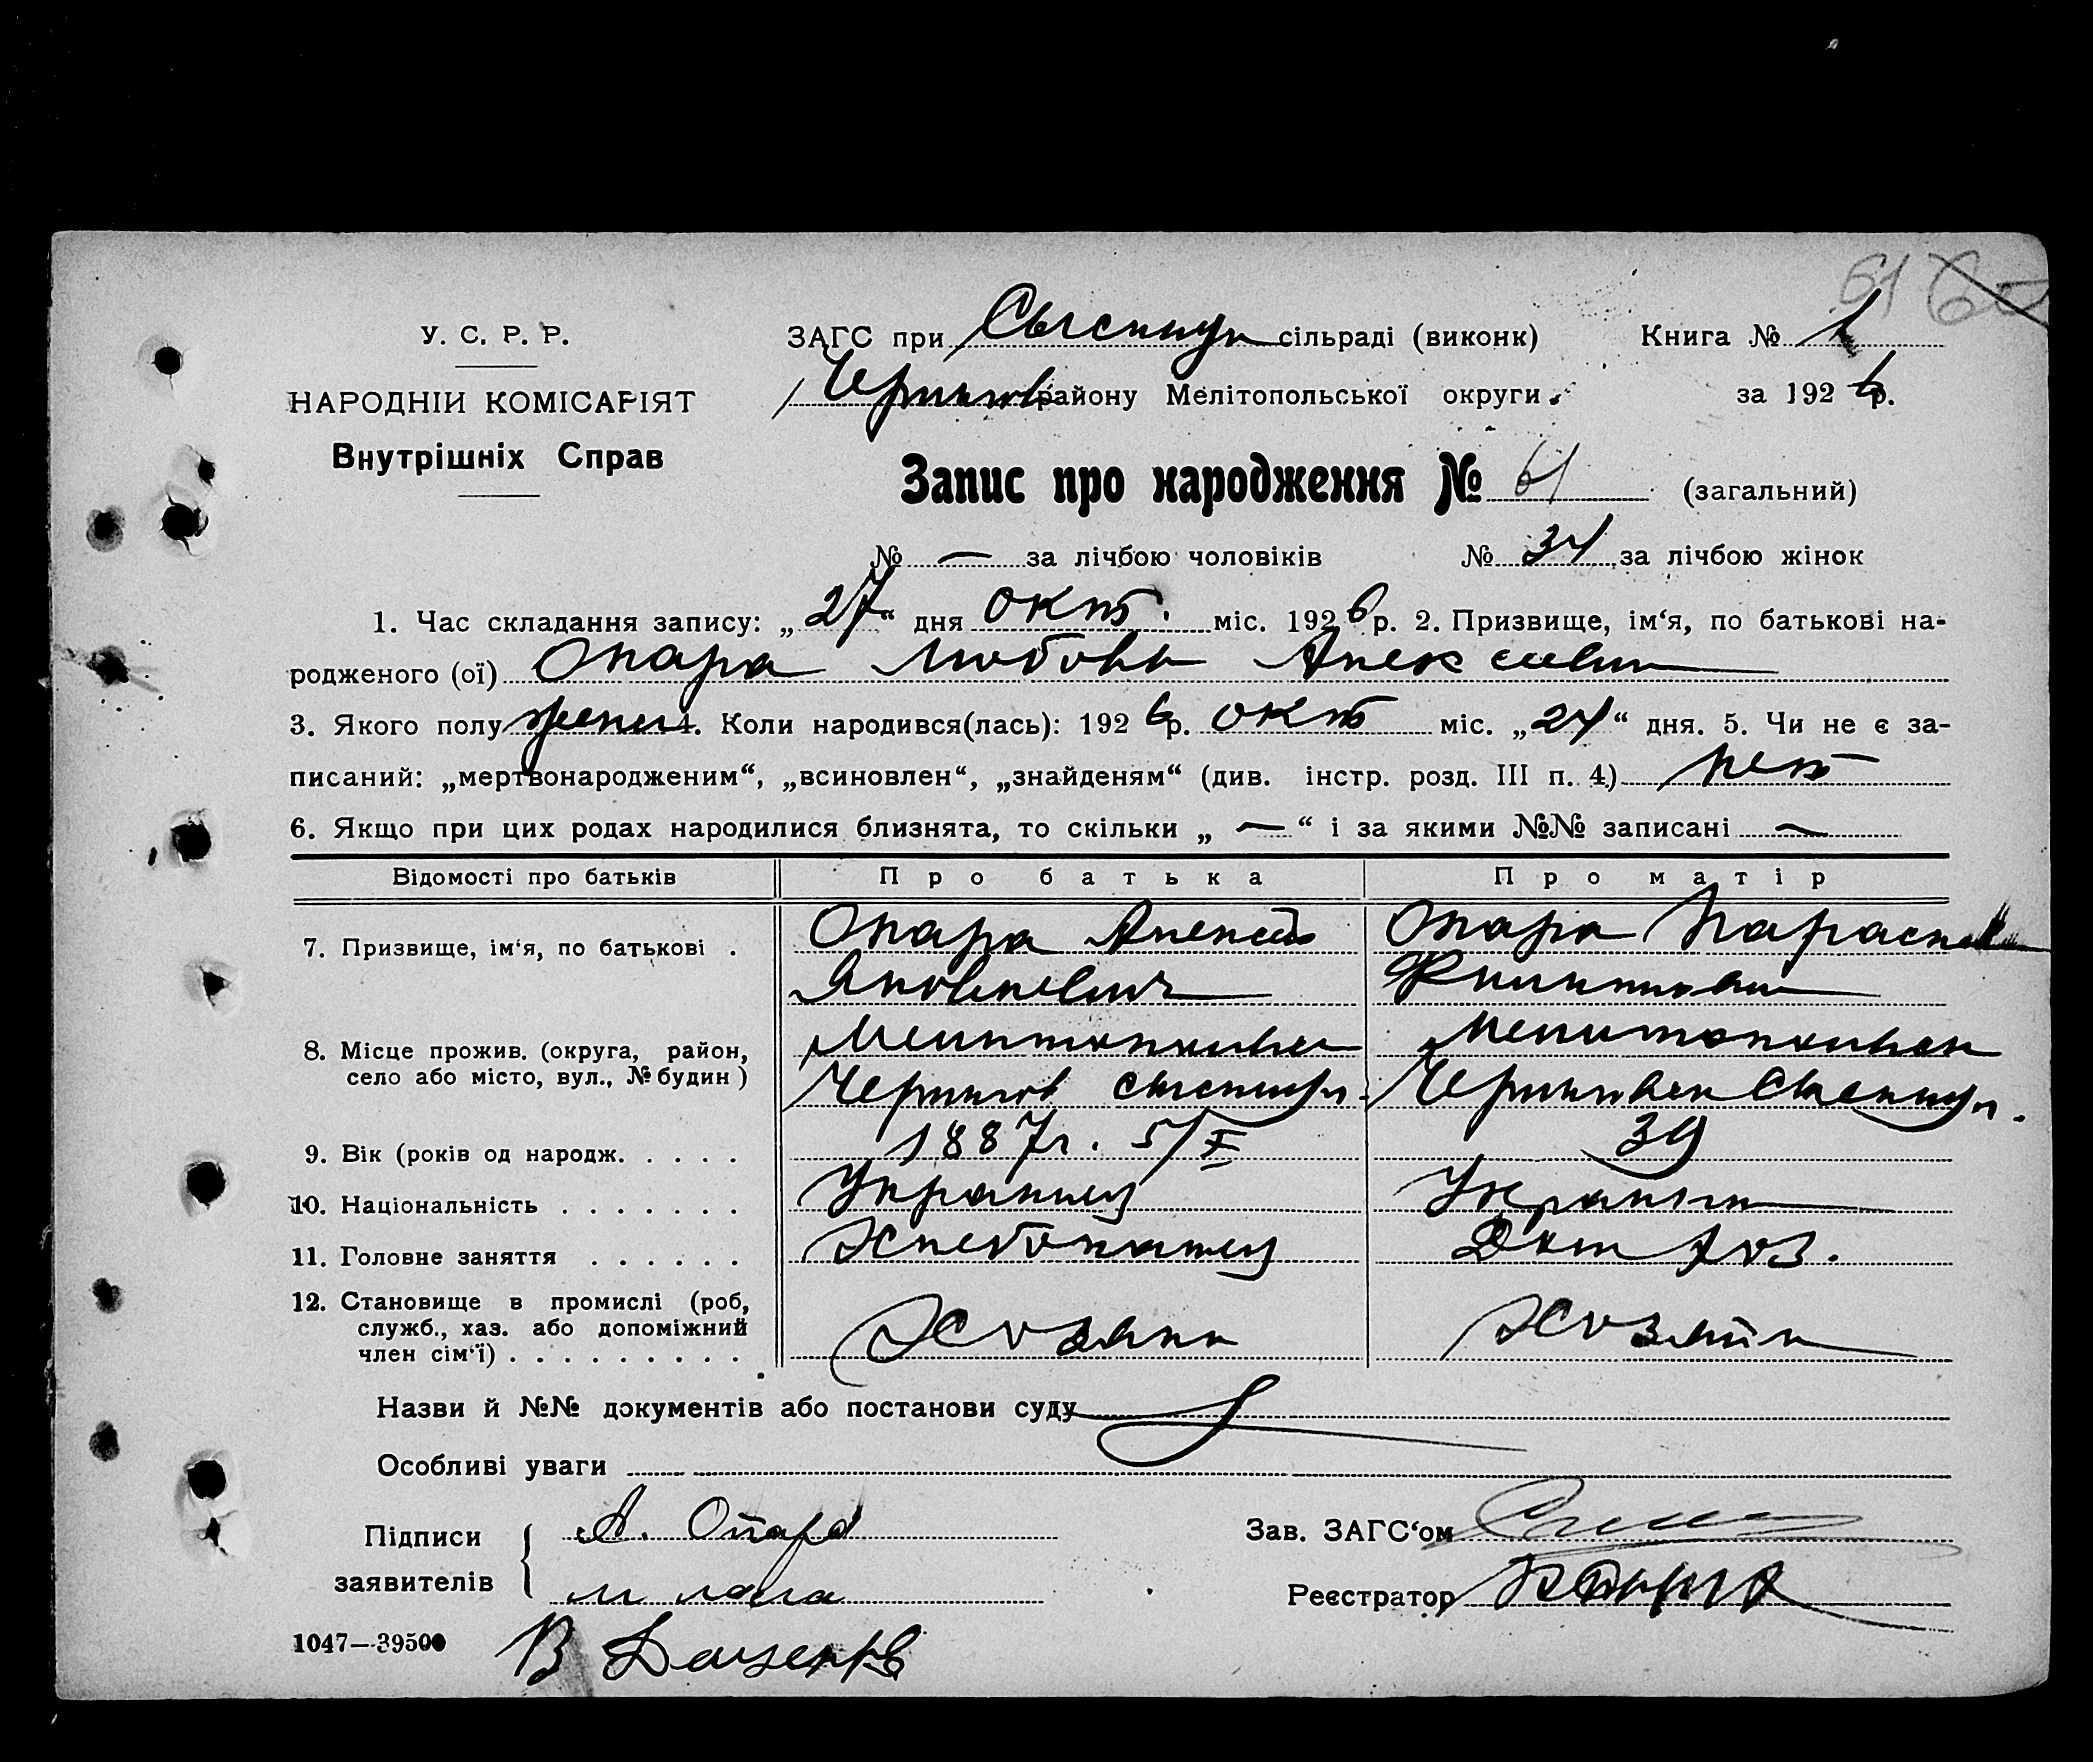 61 60
У. С. Р. Р.
ЗАГС при сільраді (виконк) Книга № 1
НАРОДНІЙ КОМІСАРІЯТ
Чернигов району Мелітопольської округи за 1926 р.
Внутрішніх Справ
Запис про народження № 61 (загальний)
№ — за лічбою чоловіків № 34 за лічбою жінок
1. Час складання запису: „27“ дня окт. міс. 1926 р. 2. Призвище, ім‘я, по батькові на-
родженого (ої) Опара Любовь Алексеевна
3. Якого полу женс 4. Коли народився(лась): 1926 р. окт міс. „24“ дня. 5. Чи не є за-
писаний: „мертвонародженим“, „всиновлен“, „знайденям“ (див. інстр. розд. III п. 4) нет
6. Якщо при цих родах народилися близнята, то скільки „ — “ і за якими №№ записані —
Відомості про батьків Про батька Про матір
7. Призвище, ім‘я, по батькові . Опара Алексей Опара Параскева
Яковлевич Филипповна
8. Місце прожив. (округа, район,
село або місто, вул., № будин) Чернигов
9. Вік (років од народж. . . . . 1887г. 5/X 39
10. Національність . . . . . . . Украинец Украинка
11. Головне заняття . . . . . . Хлебопашец Дом хоз.
12. Становище в промислі (роб,
служб., хаз. або допоміжний
член сім‘ї) . . . . . . . . . Хозяин Хозяйка
Назви й №№ документів або постанови суду
Особливі уваги
Підписи А. Опара Зав. ЗАГС‘ом
заявителів Реєстратор
1047—39500 В Даценко